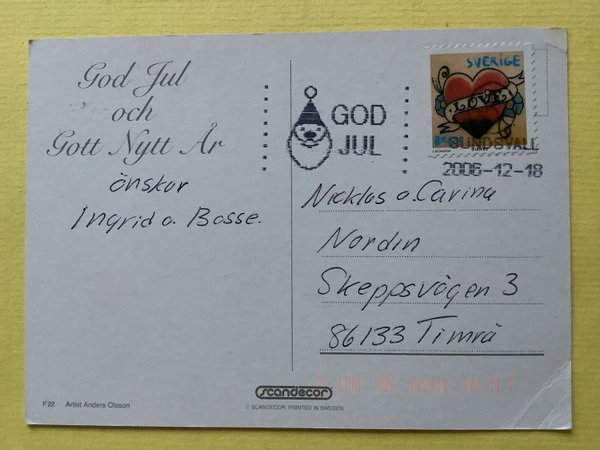 God Jul
och
Gott Nytt År
önskar
Ingrid o. Bosse.
SVERIGE
LOVE
GOD
JUL
SUNDSVALL
2006-12-18
Nicklas o. Carina
Nordin
Skeppsvägen 3
86133 Timrå
scandecor
© SCANDECOR, PRINTED IN SWEDEN
F 22 Artist Anders Olsson